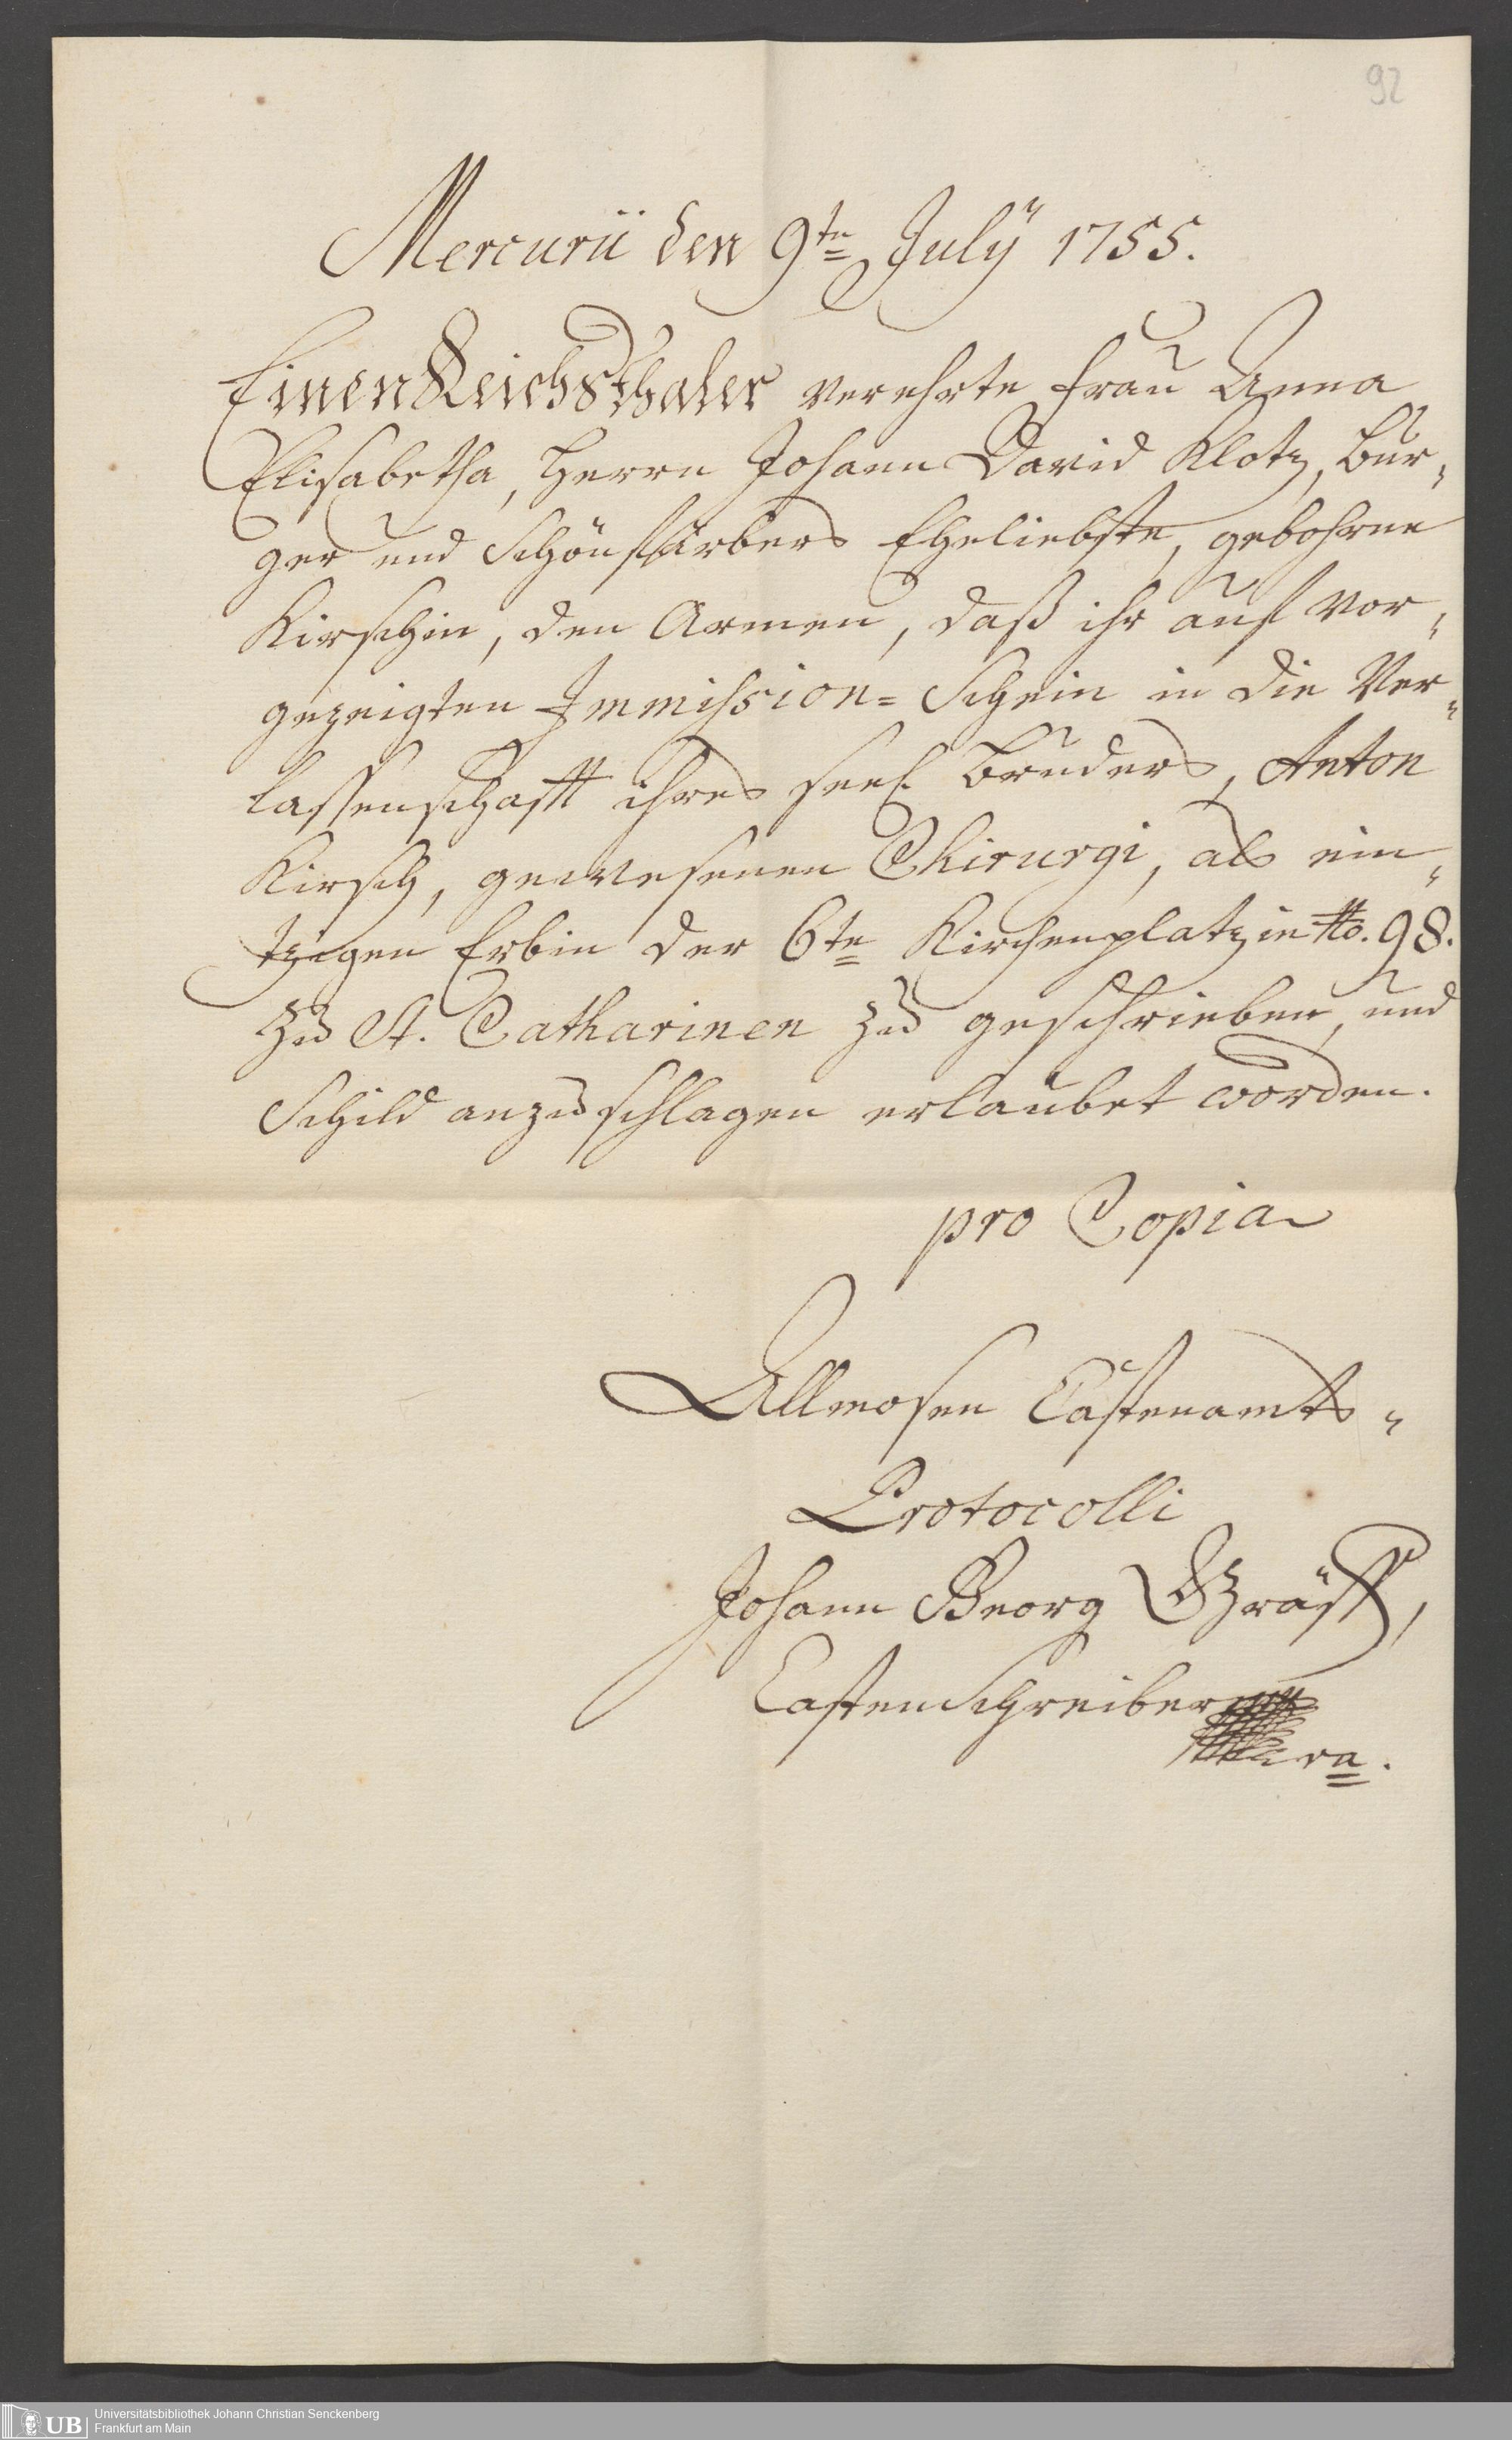 92
Mercurii den 9ten July 1755.
Einen Reichsthaler verehrte Frau Anna
Elisabetha, Herrn Johann David Klotz, Bur„
ger und Schönfärbers Eheliebste, gebohrne
Kirschin, den Armen, daß ihr auf vor„
gezeigten Immission= Schein in die Ver„
lassenschafft ihres seel. Bruders, Anton
Kirsch, gewesenen Chirurgi, als ein„
tzigen Erbin der 6te Kirchenplatz in No. 98.
zu St. Catharinen zu geschrieben, und
Schild anzuschlagen erlaubet worden.
pro Copia
Allmosen Castenamts„
Protocolli
Johann Georg Gräff,
Castenschreiber
UB
Universitätsbibliothek Johann Christian Senckenberg
Frankfurt am Main